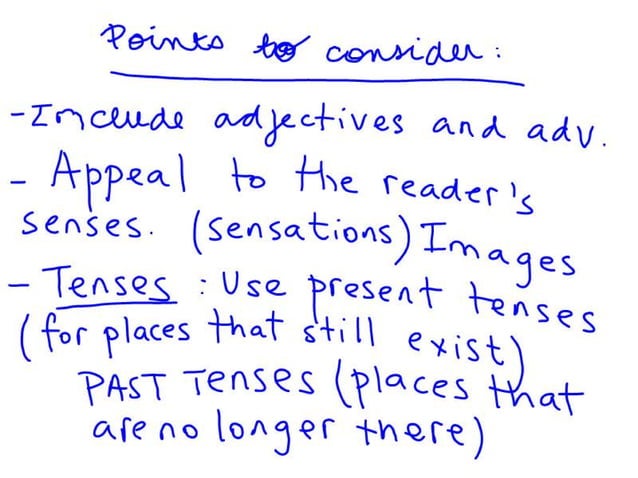 Points to consider:
- Include adjectives and adv.
- Appeal to the reader's
senses. (sensations) Images
- Tenses: Use present tenses
(for places that still exist)
PAST TENSES (places that
are no longer there)